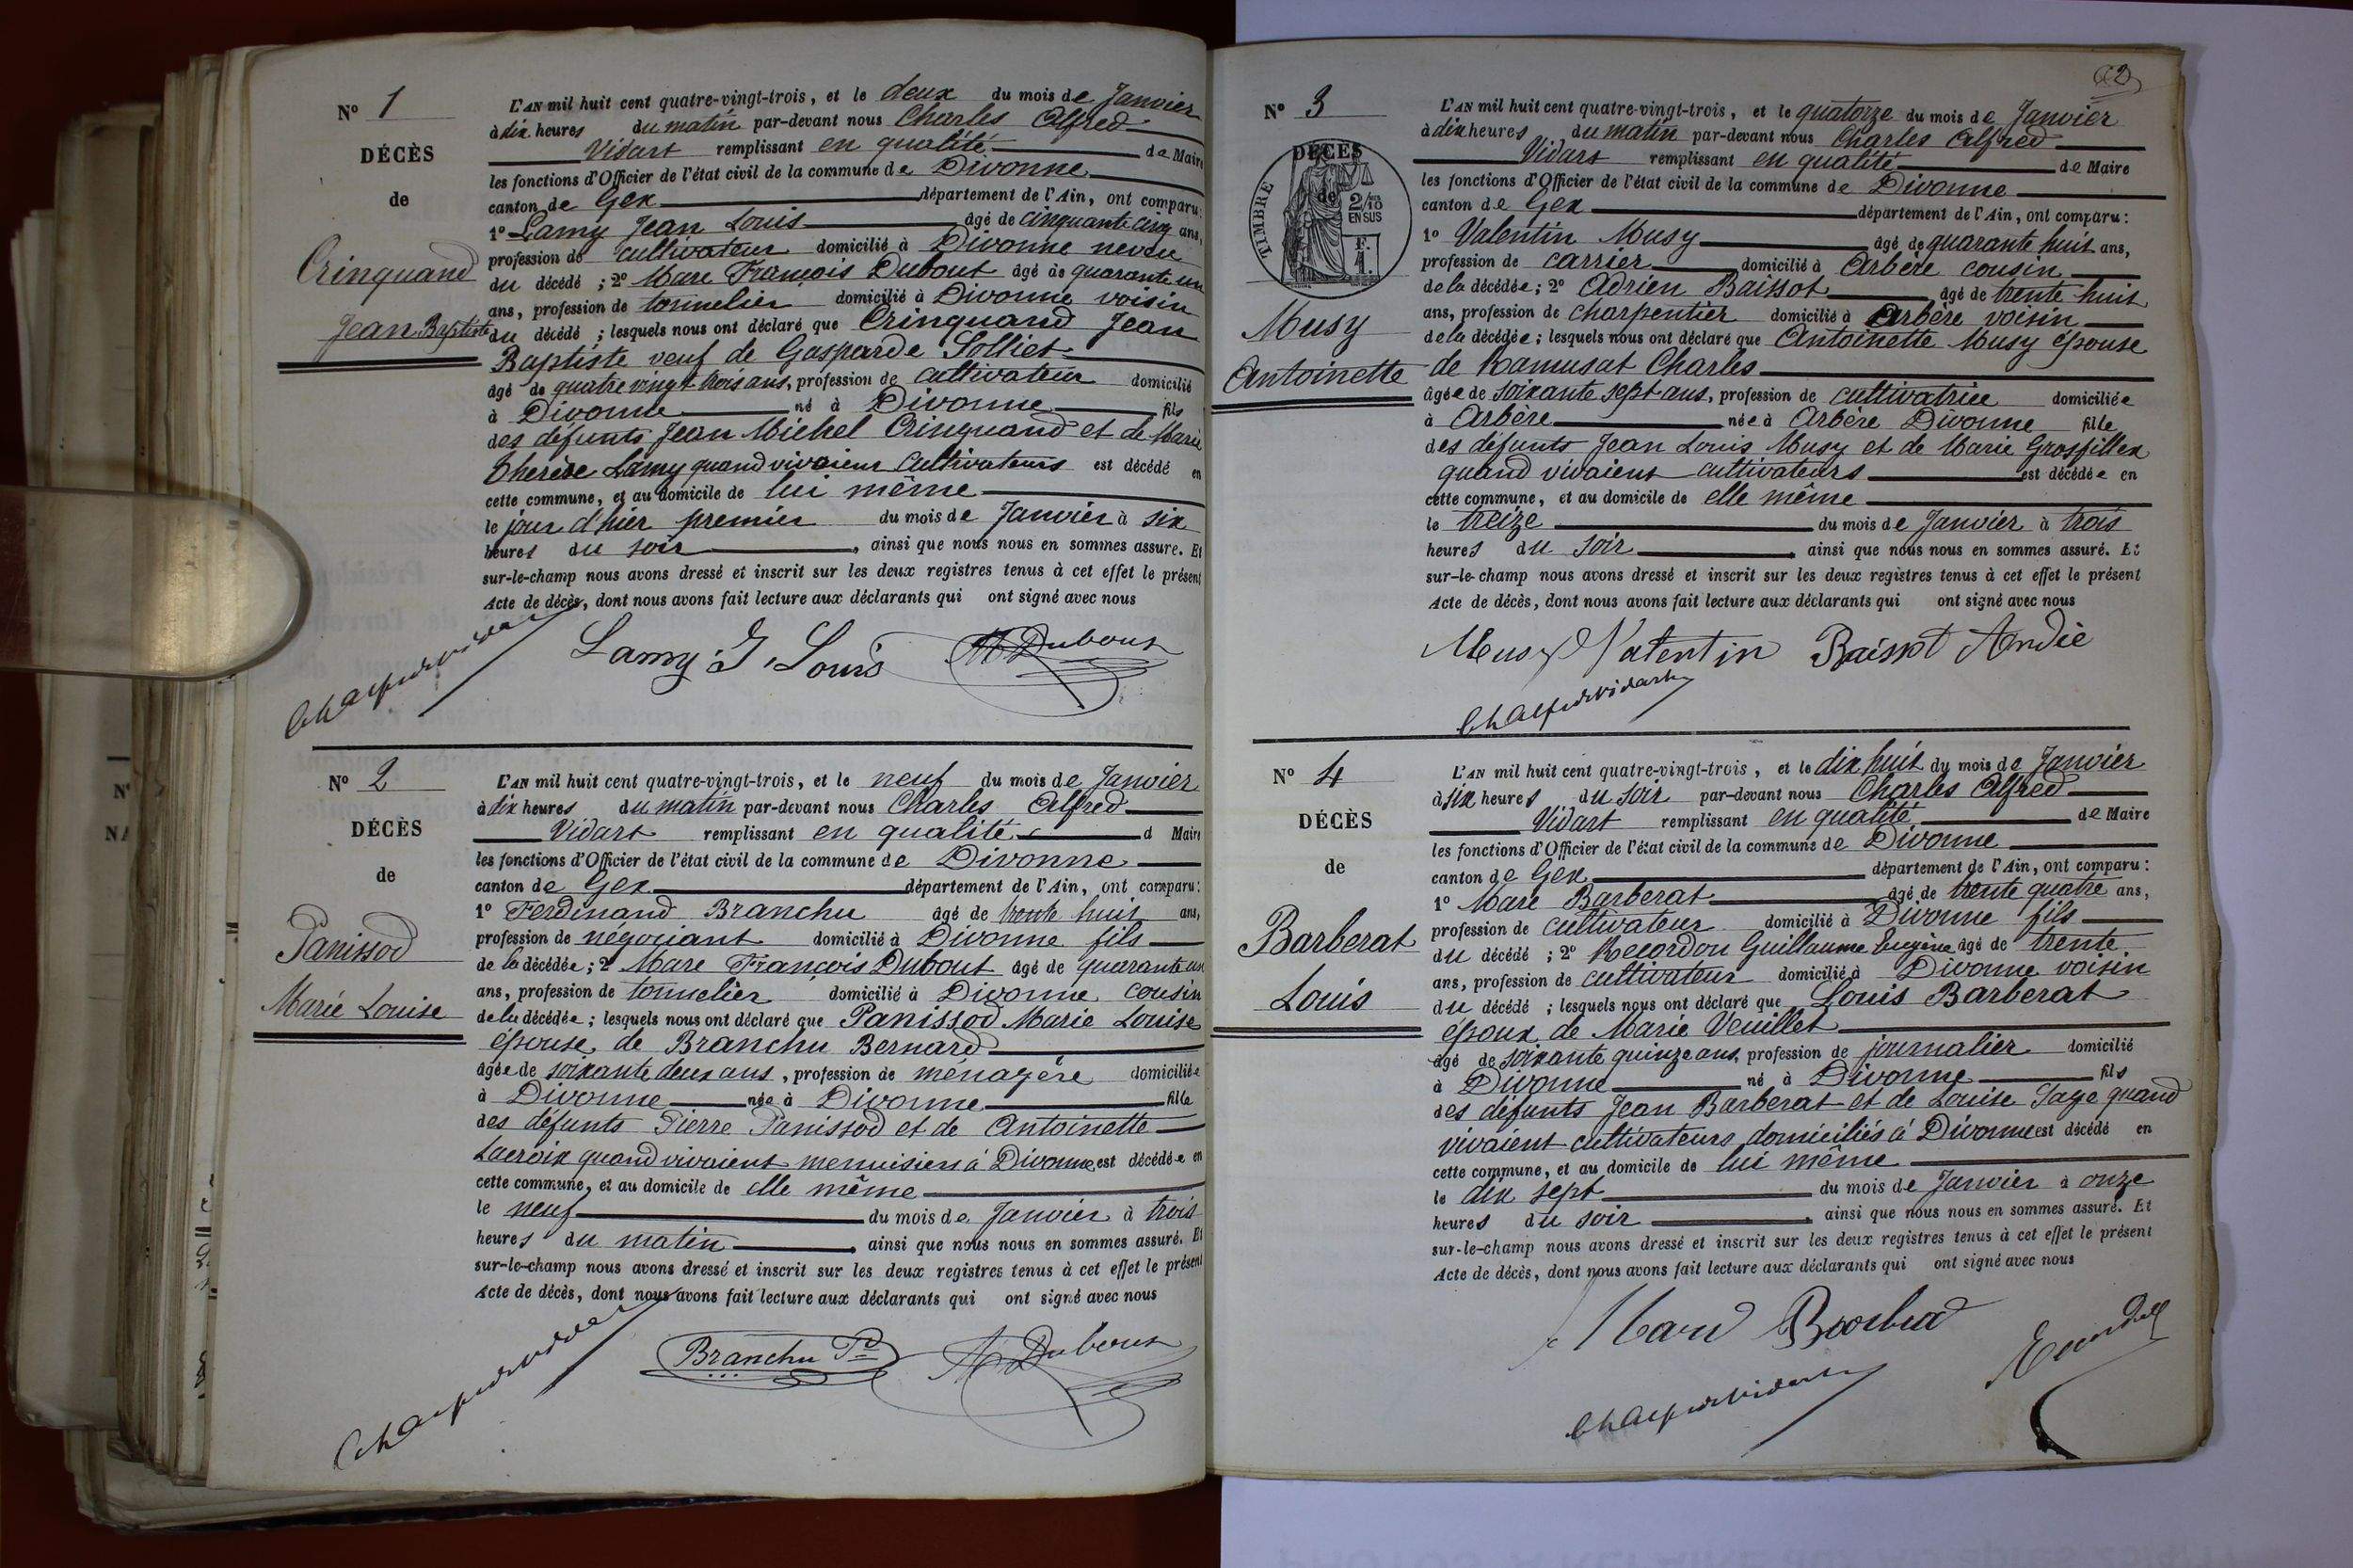 N° 1
DÉCÈS
de
Crinquand
Jean Baptiste
L'AN mil huit cent quatre-vingt-trois, et le deux du mois de Janvier
à dix heures du matin par-devant nous Charles Alfred
Vidart remplissant en qualité de Maire
les fonctions d'Officier de l'état civil de la commune de Divonne
canton de Gex département de l'Ain, ont comparu:
1° Lamy Jean Louis âgé de cinquante cinq ans,
profession de cultivateur domicilié à Divonne neveu
du décédé ; 2° Marc François Dubout âgé de quarante un
ans, profession de tonnelier domicilié à Divonne voisin
du décédé ; lesquels nous ont déclaré que Crinquand Jean
Baptiste veuf de Gasparde Solliet
âgé de quatre vingt trois ans, profession de cultivateur domicilié
à Divonne né à Divonne fils
des défunts Jean Michel Crinquand et de Marie
Therèse Lamy quand vivaient Cultivateurs est décédé en
cette commune, et au domicile de lui même
le jour d'hier premier du mois de Janvier à six
heures du soir, ainsi que nous nous en sommes assuré. Et
sur-le-champ nous avons dressé et inscrit sur les deux registres tenus à cet effet le présent
Acte de décès, dont nous avons fait lecture aux déclarants qui ont signé avec nous
Chalfredvidart Lamy J. Louis M Dubout
N° 2
DÉCÈS
de
Panissod
Marie Louise
L'AN mil huit cent quatre-vingt-trois, et le neuf du mois de Janvier
à dix heures du matin par-devant nous Charles Alfred
Vidart remplissant en qualité d Maire
les fonctions d'Officier de l'état civil de la commune de Divonne
canton de Gex département de l'Ain, ont comparu:
1° Ferdinand Branchu âgé de trente huit ans,
profession de négociant domicilié à Divonne fils
de la décédée ; 2° Marc François Dubout âgé de quarante un
ans, profession de tonnelier domicilié à Divonne cousin
de la décédée ; lesquels nous ont déclaré que Panissod Marie Louise
épouse de Branchu Bernard
âgée de soixante deux ans, profession de ménagère domiciliée
à Divonne née à Divonne fille
des défunts Pierre Panissod et de Antoinette
Lacroix quand vivaient menuisiers à Divonne est décédée en
cette commune, et au domicile de elle même
le neuf du mois de Janvier à trois
heures du matin, ainsi que nous nous en sommes assuré. Et
sur-le-champ nous avons dressé et inscrit sur les deux registres tenus à cet effet le présent
Acte de décès, dont nous avons fait lecture aux déclarants qui ont signé avec nous
Chalfredvidart Branchu Fd M Dubout
2
N° 3
DÉCÈS
de
TIMBRE
2/10
EN SUS
F.
1.
Musy
Antoinette
L'AN mil huit cent quatre-vingt-trois, et le quatorze du mois de Janvier
à dix heures du matin par-devant nous Charles Alfred
Vidart remplissant en qualité de Maire
les fonctions d'Officier de l'état civil de la commune de Divonne
canton de Gex département de l'Ain, ont comparu:
1° Valentin Musy âgé de quarante huit ans,
profession de carrier domicilié à Arbère cousin
de la décédée ; 2° Adrien Baissot âgé de trente huit
ans, profession de charpentier domicilié à Arbère voisin
de la décédée ; lesquels nous ont déclaré que Antoinette Musy épouse
de Ramusat Charles
âgée de soixante sept ans, profession de cultivatrice domiciliée
à Arbère née à Arbère Divonne fille
des défunts Jean Louis Musy et de Marie Grosfillex
quand vivaient cultivateurs est décédée en
cette commune, et au domicile de elle même
le treize du mois de Janvier à trois
heures du soir, ainsi que nous nous en sommes assuré. Et
sur-le-champ nous avons dressé et inscrit sur les deux registres tenus à cet effet le présent
Acte de décès, dont nous avons fait lecture aux déclarants qui ont signé avec nous
Musy Valentin Baissot
Chalfredvidart
N° 4
DÉCÈS
de
Barberat
Louis
L'AN mil huit cent quatre-vingt-trois, et le dix huit du mois de Janvier
à six heures du soir par-devant nous Charles Alfred
Vidart remplissant en qualité de Maire
les fonctions d'Officier de l'état civil de la commune de Divonne
canton de Gex département de l'Ain, ont comparu:
1° Marc Barberat âgé de trente quatre ans,
profession de cultivateur domicilié à Divonne fils
du décédé ; 2° Recordon Guillaume Eugène âgé de trente
ans, profession de cultivateur domicilié à Divonne voisin
du décédé ; lesquels nous ont déclaré que Louis Barberat
époux de Marie Veuillet
âgé de soixante quinze ans, profession de journalier domicilié
à Divonne né à Divonne fils
des défunts Jean Barberat et de Louise Saye quand
vivaient cultivateurs domiciliés à Divonne est décédé en
cette commune, et au domicile de lui même
le dix sept du mois de Janvier à onze
heures du soir, ainsi que nous nous en sommes assuré. Et
sur-le-champ nous avons dressé et inscrit sur les deux registres tenus à cet effet le présent
Acte de décès, dont nous avons fait lecture aux déclarants qui ont signé avec nous
Chalfredvidart